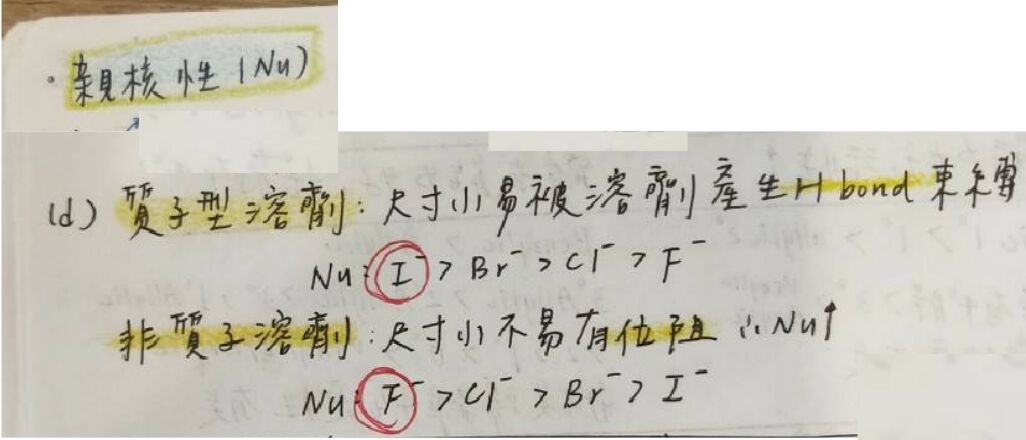 。親核性 (Nu)
(d) 質子型溶劑: 尺寸小易被溶劑產生H bond 束縛
Nu: I⁻ > Br⁻ > Cl⁻ > F⁻
非質子溶劑: 尺寸小不易有位阻 ∴ Nu↑
Nu: F⁻ > Cl⁻ > Br⁻ > I⁻